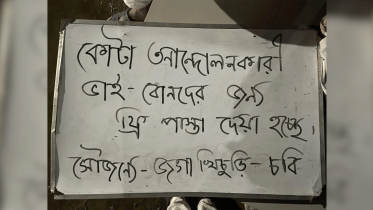 কোটা আন্দোলনকারী
ভাই-বোনদের জন্য
ফ্রি পাস্তা দেয়া হচ্ছে।
সৌজন্যে - জগা খিচুড়ি - চবি